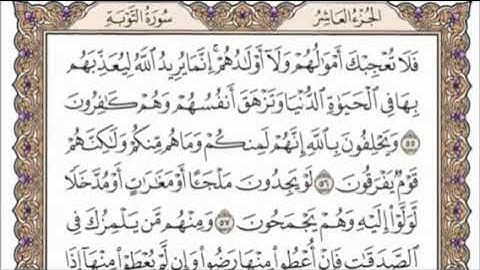 سُورَةُ التَّوْبَةِ الجُزْءُ العَاشِرُ
فَلَا تُعْجِبْكَ أَمْوَٰلُهُمْ وَلَآ أَوْلَٰدُهُمْ ۚ إِنَّمَا يُرِيدُ ٱللَّهُ لِيُعَذِّبَهُم
بِهَا فِى ٱلْحَيَوٰةِ ٱلدُّنْيَا وَتَزْهَقَ أَنفُسُهُمْ وَهُمْ كَٰفِرُونَ
٥٥ وَيَحْلِفُونَ بِٱللَّهِ إِنَّهُمْ لَمِنكُمْ وَمَا هُم مِّنكُمْ وَلَٰكِنَّهُمْ
قَوْمٌ يَفْرَقُونَ ٥٦ لَوْ يَجِدُونَ مَلْجَـًٔا أَوْ مَغَٰرَٰتٍ أَوْ مُدَّخَلًا
لَّوَلَّوْا۟ إِلَيْهِ وَهُمْ يَجْمَحُونَ ٥٧ وَمِنْهُم مَّن يَلْمِزُكَ فِى
ٱلصَّدَقَٰتِ فَإِنْ أُعْطُوا۟ مِنْهَا رَضُوا۟ وَإِن لَّمْ يُعْطَوْا۟ مِنْهَآ إِذَا